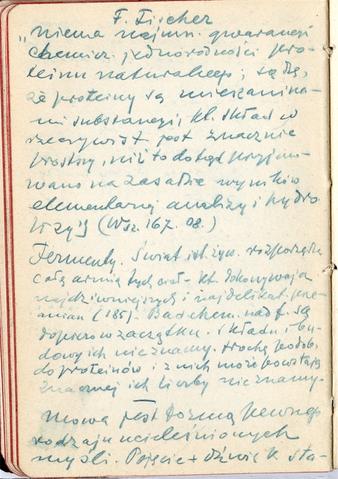 F. Fischer
"niema najmn. gwarancji
chemicz. jednorodności pro-
teinu naturalnego; sądzę,
że proteiny są mieszanina-
mi substancyj, kt. skład w
rzeczywist. jest znacznie
prostszy, niż to dotąd przyjmo-
wano na zasadzie wyników
elementarnej analizy i hydro-
lizy" (Wsz. 167. 08.)
Fermenty. Świat ist. żyw. rozporządza
całą armią tych ciał - kt. dokonywają
najdziwniejszych i najdelikat. prze-
mian (185). Bad. chem. nad f. są
dopiero w zaczątku. Składu i bu-
dowy ich nie znamy. trochę podob.
do proteinów i z nich może powstają
znacznej ich liczby nie znamy.
Mowa jest formą pewnego
rodzaju ucieleśnionych
myśli. Pojęcie + dźwięk sta-